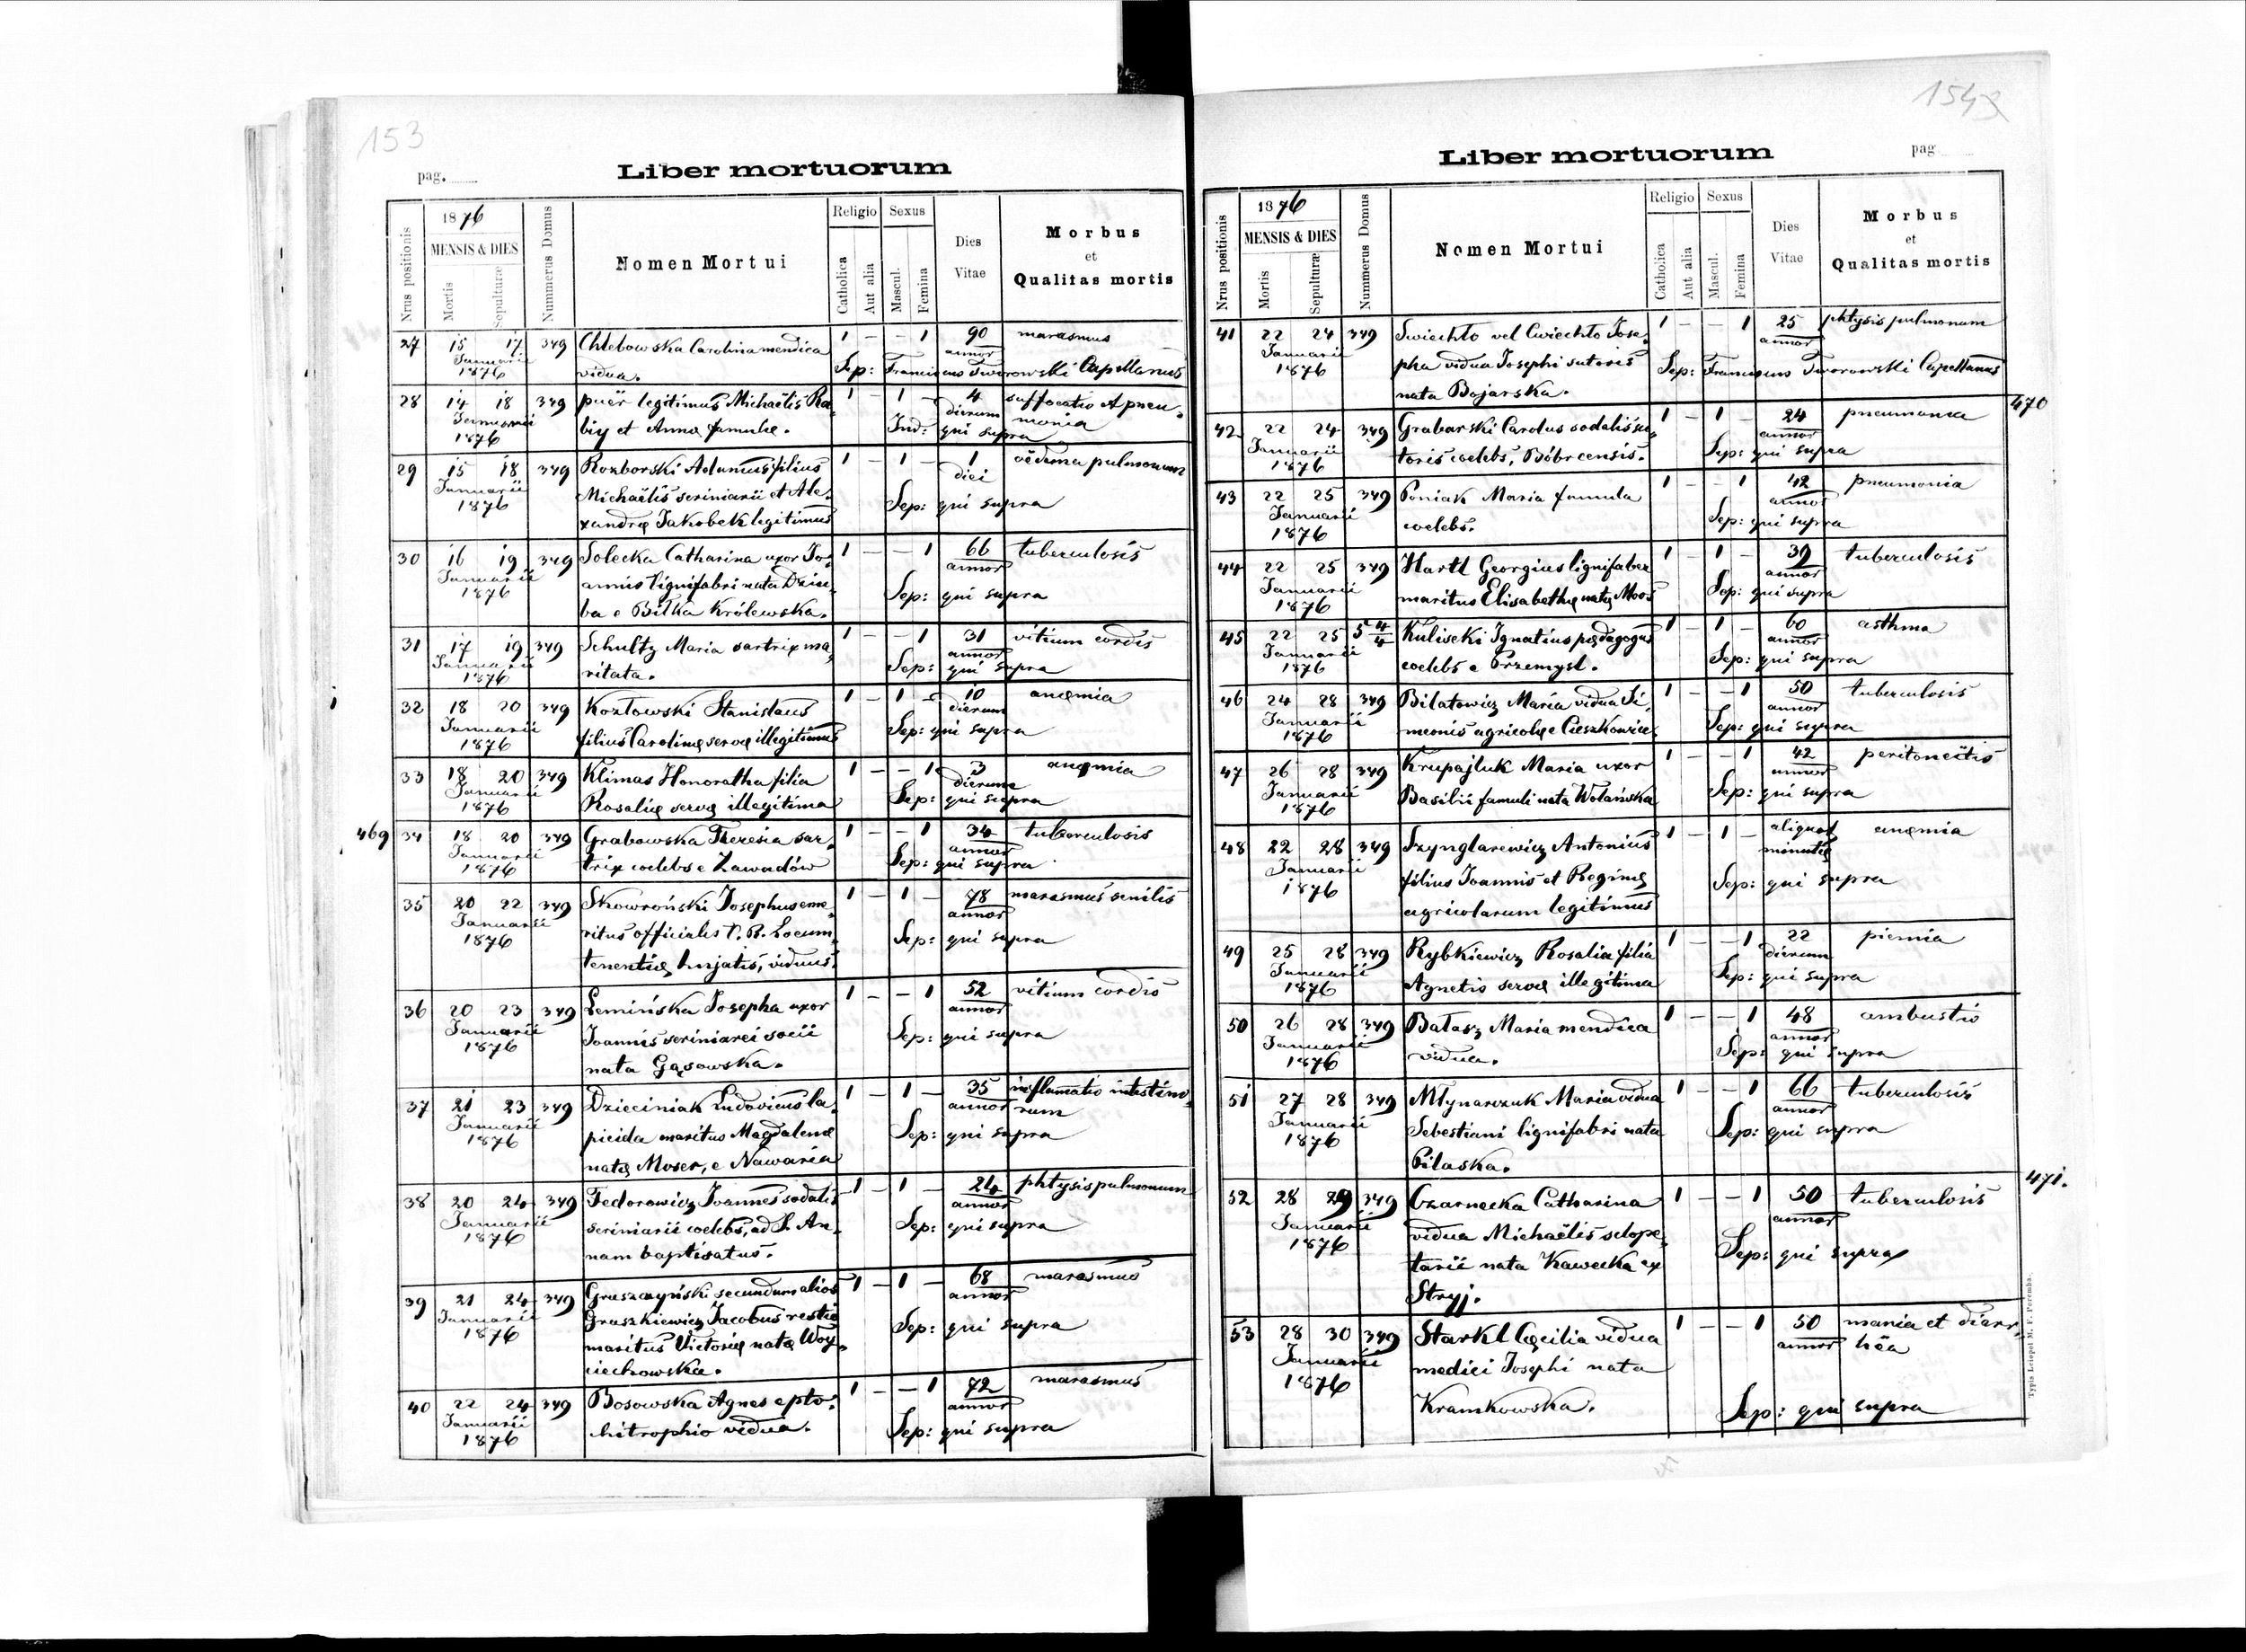 153
pag.
Liber mortuorum
Nrus positionis
1876
MENSIS & DIES
Mortis
Sepulturæ
Nummerus Domus
Nomen Mortui
Religio
Catholica
Aut alia
Sexus
Mascul.
Femina
Dies
Vitae
Morbus
et
Qualitas mortis
27 15 17 349 Chlebowska Carolina mendica 1 - - 1 90 marasmus
Januarii
1876 vidua. annor
Sep: Franciscus Tworowski Capellanus
28 14 18 349 puer legitimus Michaëlis Ra- 1 - 1 - 4 suffocatio Apneu-
Januarii
1876 biy et Anna famulæ. dierum monia
Ind: qui supra
29 15 18 349 Rozborski Adamus filius 1 - 1 - 1 oedema pulmonum
Januarii Michaëlis scriniarii et Ale- diei
1876 xandrę Jakobek legitimus Sep: qui supra
30 16 19 349 Solecka Catharina uxor Jo- 1 - - 1 66 tuberculosis
Januarii annis lignifabri nata Dziu- annor
1876 ba e Biłka Królewska. Sep: qui supra
31 17 19 349 Schultz Maria sartrix ma- 1 - - 1 31 vitium cordis
Januarii annor
1876 ritata. Sep: qui supra
32 18 20 349 Kozłowski Stanislaus 1 - 1 - 10 anęmia
Januarii dierum
1876 filius Carolinę servę illegitimus Sep: qui supra
33 18 20 349 Klimas Honoratha filia 1 - - 1 3 anęmia
Januarii dierum
1876 Rosalię servę illegitima Sep: qui supra
469 34 18 20 349 Grabowska Theresia sar- 1 - - 1 34 tuberculosis
Januarii annor
1876 trix coelebs e Zawadów Sep: qui supra
35 20 22 349 Skowroński Josephus eme- 1 - 1 - 78 marasmus senilis
Januarii ritus officialis C. R. Locum- annor
1876 tenentię hujatis, viduus. Sep: qui supra
36 20 23 349 Lemińska Josepha uxor 1 - - 1 52 vitium cordis
Januarii Joannis scriniarii socii annor
1876 nata Gąsowska. Sep: qui supra
37 21 23 349 Dzieciniak Ludovicus la- 1 - 1 - 35 inflamatio intestino-
Januarii picida maritus Magdalenę annor rum
1876 natę Moser, e Nawaria Sep: qui supra
38 20 24 349 Fedorowicz Joannes sodalis 1 - 1 - 24 phtysis pulmonum
Januarii scriniarii coelebs, ad S. An- annor
1876 nam baptisatus. Sep: qui supra
39 21 24 349 Gruszczyński secundum alios 1 - 1 - 68 marasmus
Januarii Gruszkiewicz Jacobus restio annor
1876 maritus Victorię natę Woy- Sep: qui supra
ciechowska.
40 22 24 349 Bosowska Agnes e pto- 1 - - 1 72 marasmus
Januarii annor
1876 chitrophio vidua. Sep: qui supra
154
pag.
Liber mortuorum
Nrus positionis
1876
MENSIS & DIES
Mortis
Sepulturæ
Nummerus Domus
Nomen Mortui
Religio
Catholica
Aut alia
Sexus
Mascul.
Femina
Dies
Vitae
Morbus
et
Qualitas mortis
41 22 24 349 Swiechto vel Cwiechto Jose- 1 - - 1 25 phtysis pulmonum
Januarii annor
1876 pha vidua Josephi sutoris Sep: Franciscus Tworowski Capellanus
nata Bojarska.
470
42 22 24 349 Grabarski Carolus sodalis su- 1 - 1 - 24 pneumonia
Januarii annor
1876 toris coelebs, Bóbrcensis. Sep: qui supra
43 22 25 349 Poniak Maria famula 1 - - 1 42 pneumonia
Januarii annor
1876 coelebs. Sep: qui supra
44 22 25 349 Hartl Georgius lignifaber 1 - 1 - 39 tuberculosis
Januarii annor
1876 maritus Elisabethę natę Moos Sep: qui supra
45 22 25 5 4/4 Kuliseki Ignatius pędagogus 1 - 1 - 60 asthma
Januarii annor
1876 coelebs e Przemysl. Sep: qui supra
46 24 28 349 Bilatowicz Maria vidua Si- 1 - - 1 50 tuberculosis
Januarii annor
1876 meonis agricolę e Cieszkowice Sep: qui supra
47 26 28 349 Krupajluk Maria uxor 1 - - 1 42 peritoneitis
Januarii annor
1876 Basilii famuli nata Wolańska Sep: qui supra
48 22 28 349 Szynglarewicz Antonius 1 - 1 - aliquot anęmia
Januarii filius Joannis et Reginę minutis
1876 agricolarum legitimus Sep: qui supra
49 25 28 349 Rybkiewicz Rosalia filia 1 - - 1 22 piemia
Januarii dierum
1876 Agnetis servę illegitima Sep: qui supra
50 26 28 349 Batasz Maria mendica 1 - - 1 48 ambustio
Januarii annor
1876 vidua. Sep: qui supra
51 27 28 349 Młynarczuk Maria vidua 1 - - 1 66 tuberculosis
Januarii Sebestiani lignifabri nata annor
1876 Pilaska. Sep: qui supra
471.
52 28 29 349 Czarnecka Catharina 1 - - 1 50 tuberculosis
Januarii vidua Michaëlis sclope- annor
1876 tarii nata Kawecka ex Sep: qui supra
Stryj.
53 28 30 349 Starkl Cęcilia vidua 1 - - 1 50 mania et diarr-
Januarii medici Josephi nata annor hëa
1876 Kramkowska. Sep: qui supra
Typis Leopol M. F. Poremba.